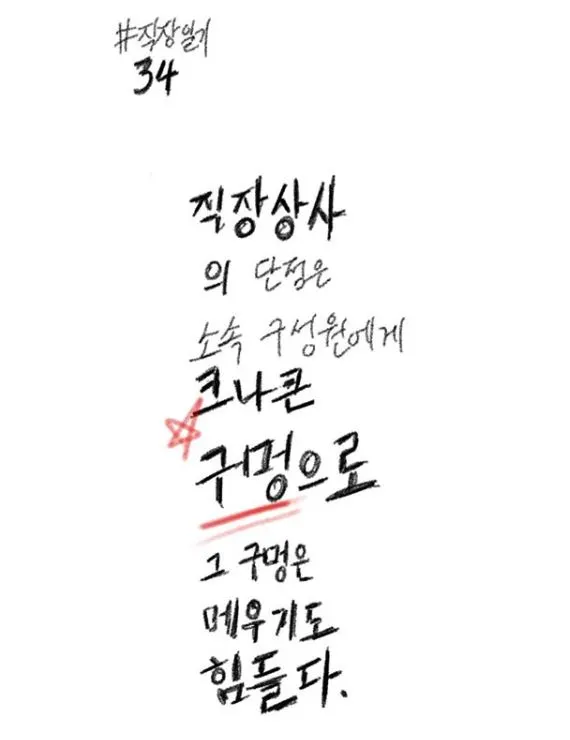 #직장일기
34
직장상사
의 단점은
소속 구성원에게
크나큰
구멍으로
그 구멍은
메우기도
힘들다.